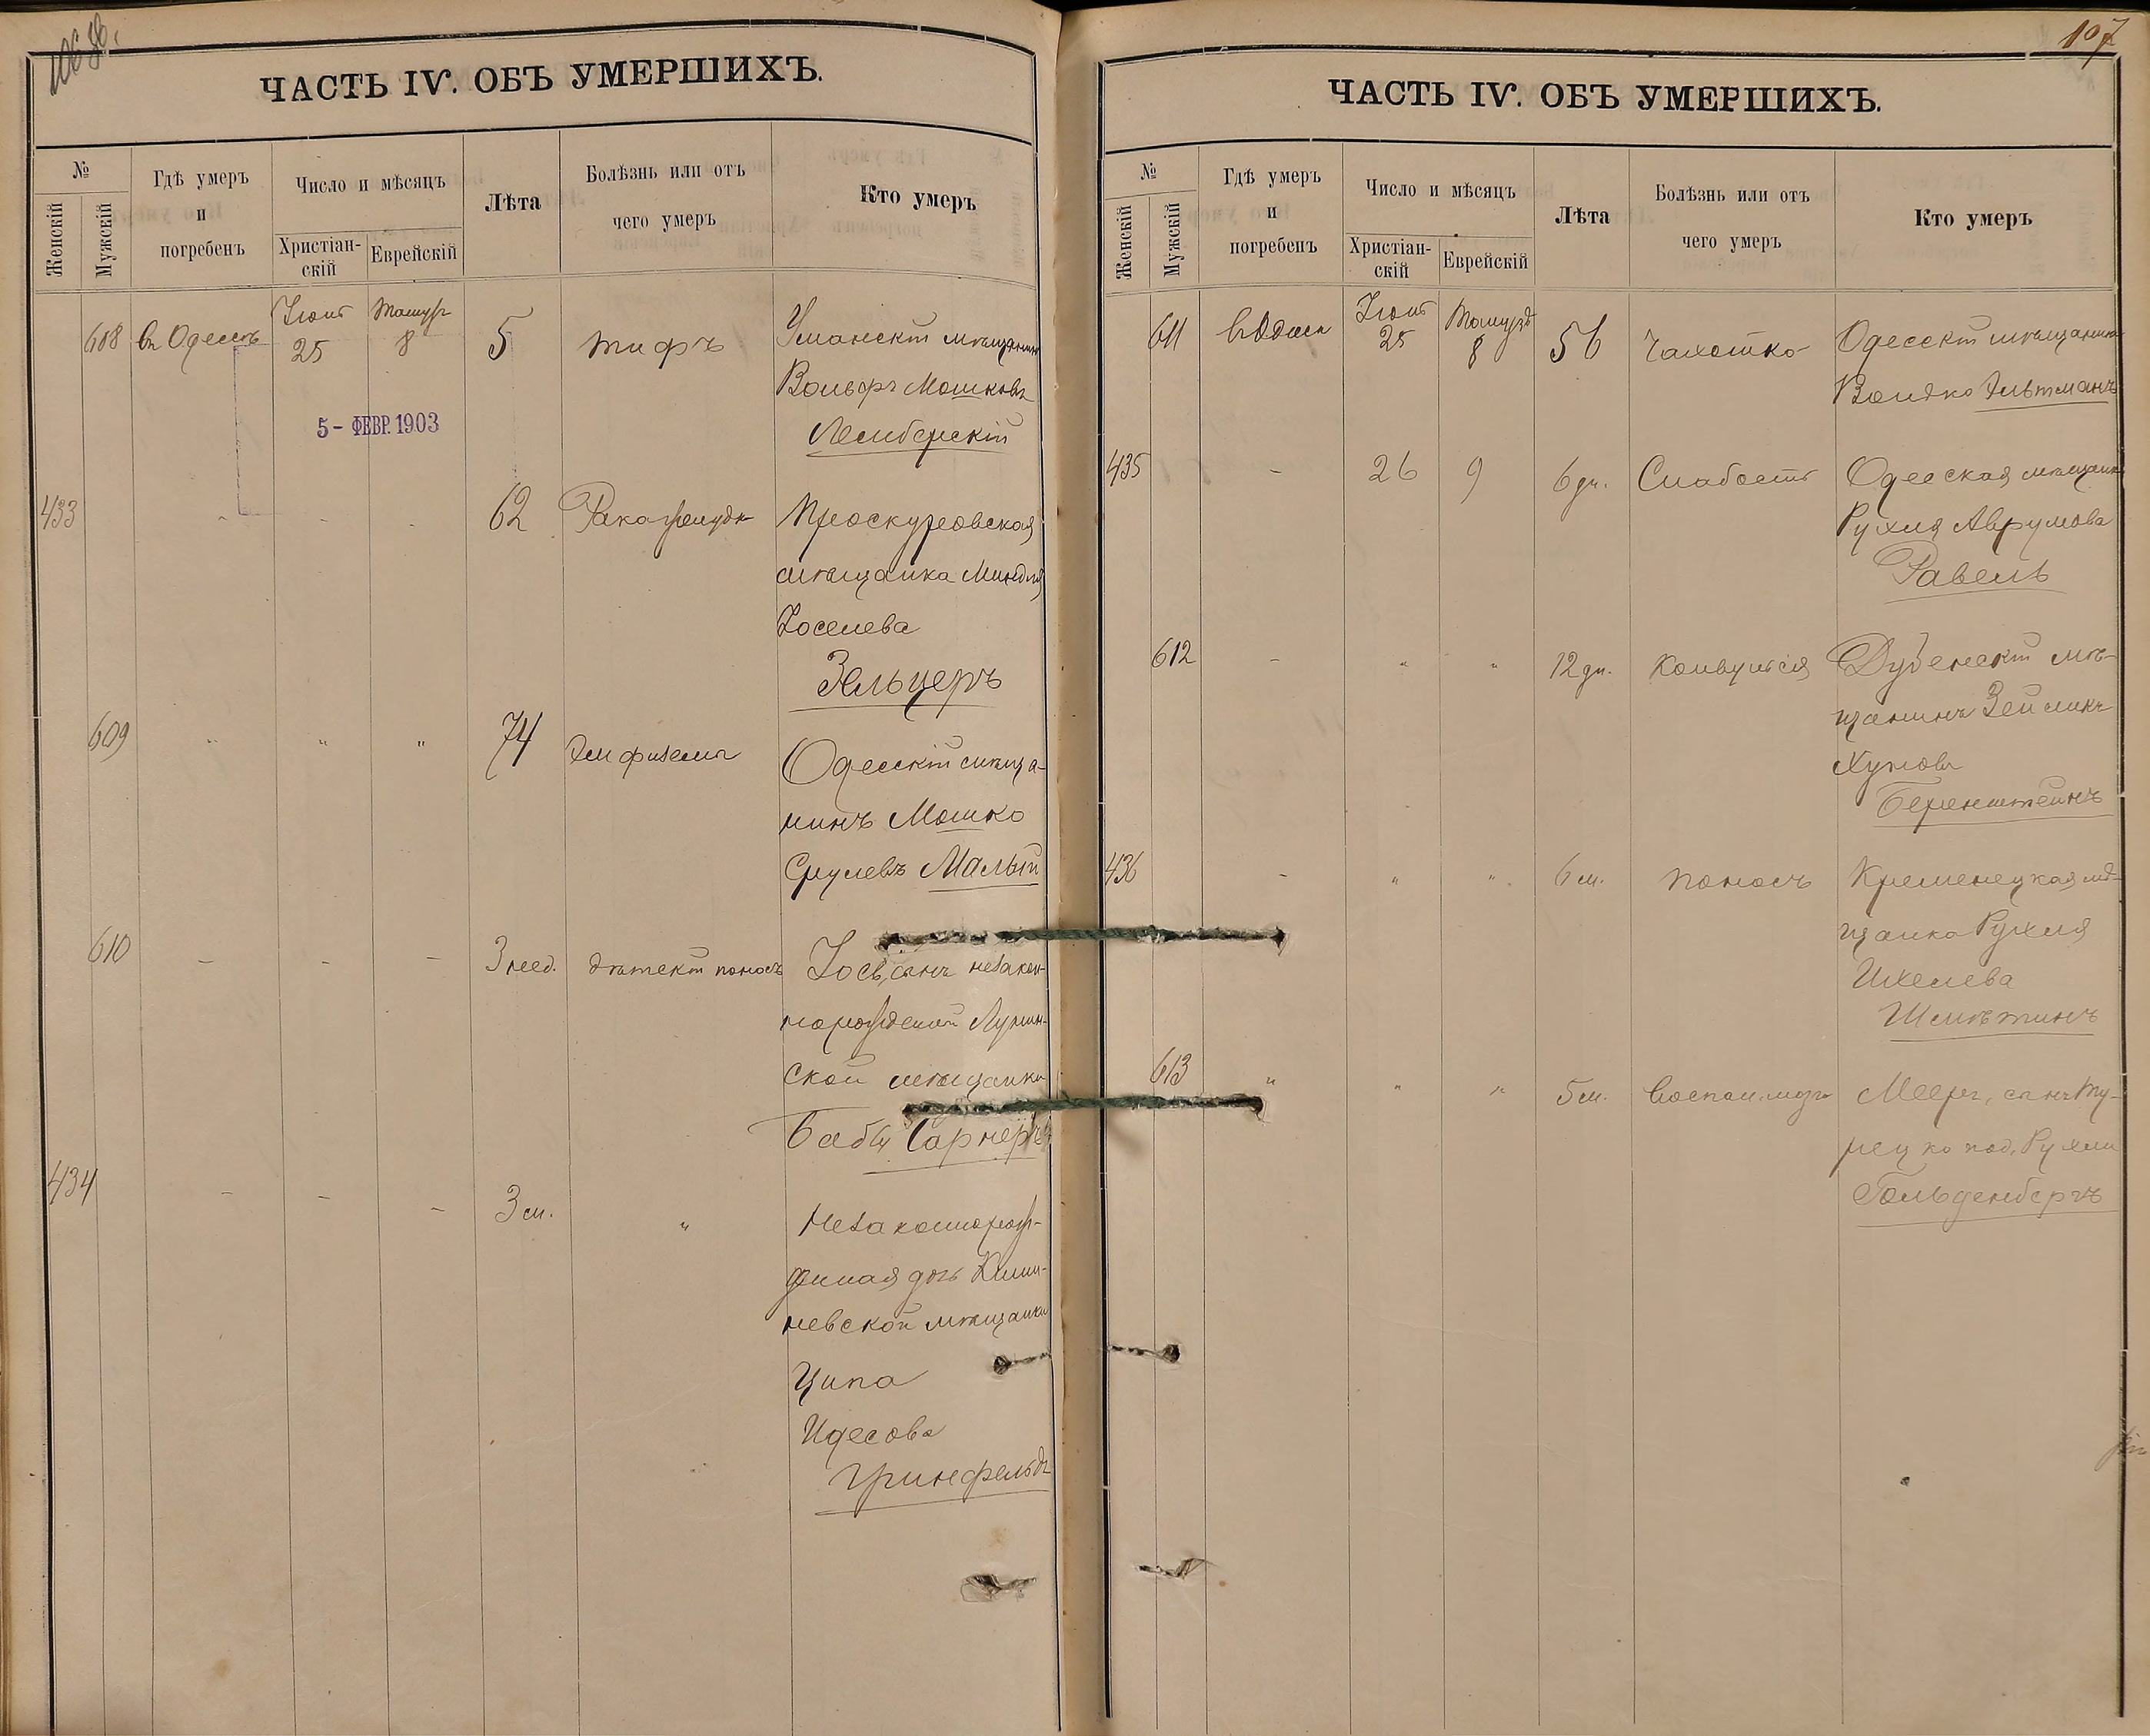 106 об.
ЧАСТЬ IV. ОБЪ УМЕРШИХЪ.
№
Женскій
Мужскій
Гдѣ умеръ
и
погребенъ
Число и мѣсяцъ
Христіан-
скій
Еврейскій
Лѣта
Болѣзнь или отъ
чего умеръ
Кто умеръ
608 въ Одессѣ Іюнь 25 8 5 тифъ Уманскій мѣщанинъ
Вольфъ Мошковъ
Лембергскій
5 - ФЕВР. 1903
433 - - - 62 Рака желудка Проскуровская
мѣщанка Миндля
Іоселева
Зельцеръ
609 " " " 74 Эмфизема Одесскій мѣща-
нинъ Мошко
Срулевъ Малый
610 - - - 3 нед. дѣтскій поносъ Іось, сынъ незакон-
норожденный
ской мѣщанки
Гарнеръ
434 - - - 3 м. " Незаконнорож-
денная дочь Киши-
невской мѣщанки
Ципа
Идесова
Гринфельдъ
107
ЧАСТЬ IV. ОБЪ УМЕРШИХЪ.
№
Женскій
Мужскій
Гдѣ умеръ
и
погребенъ
Число и мѣсяцъ
Христіан-
скій
Еврейскій
Лѣта
Болѣзнь или отъ
чего умеръ
Кто умеръ
611 Іюнь 25 8 56 Чахотка Одесскій мѣщанинъ
435 - 26 9 6 дн. Слабость Одесская мѣщанка
Рухля Аврумова
Равель
612 - " " 12 дн. Конвульсія Дубенскій мѣ-
щанинъ Зейликъ
Хуновъ
Беренштейнъ
436 - " " 6 м. поносъ Кременецкая мѣ-
щанка Рухля
Ихелева
613 " " " 5 м. Воспал. мозга Мееръ, сынъ Ту-
рецко под. Рухли
Гольденбергъ